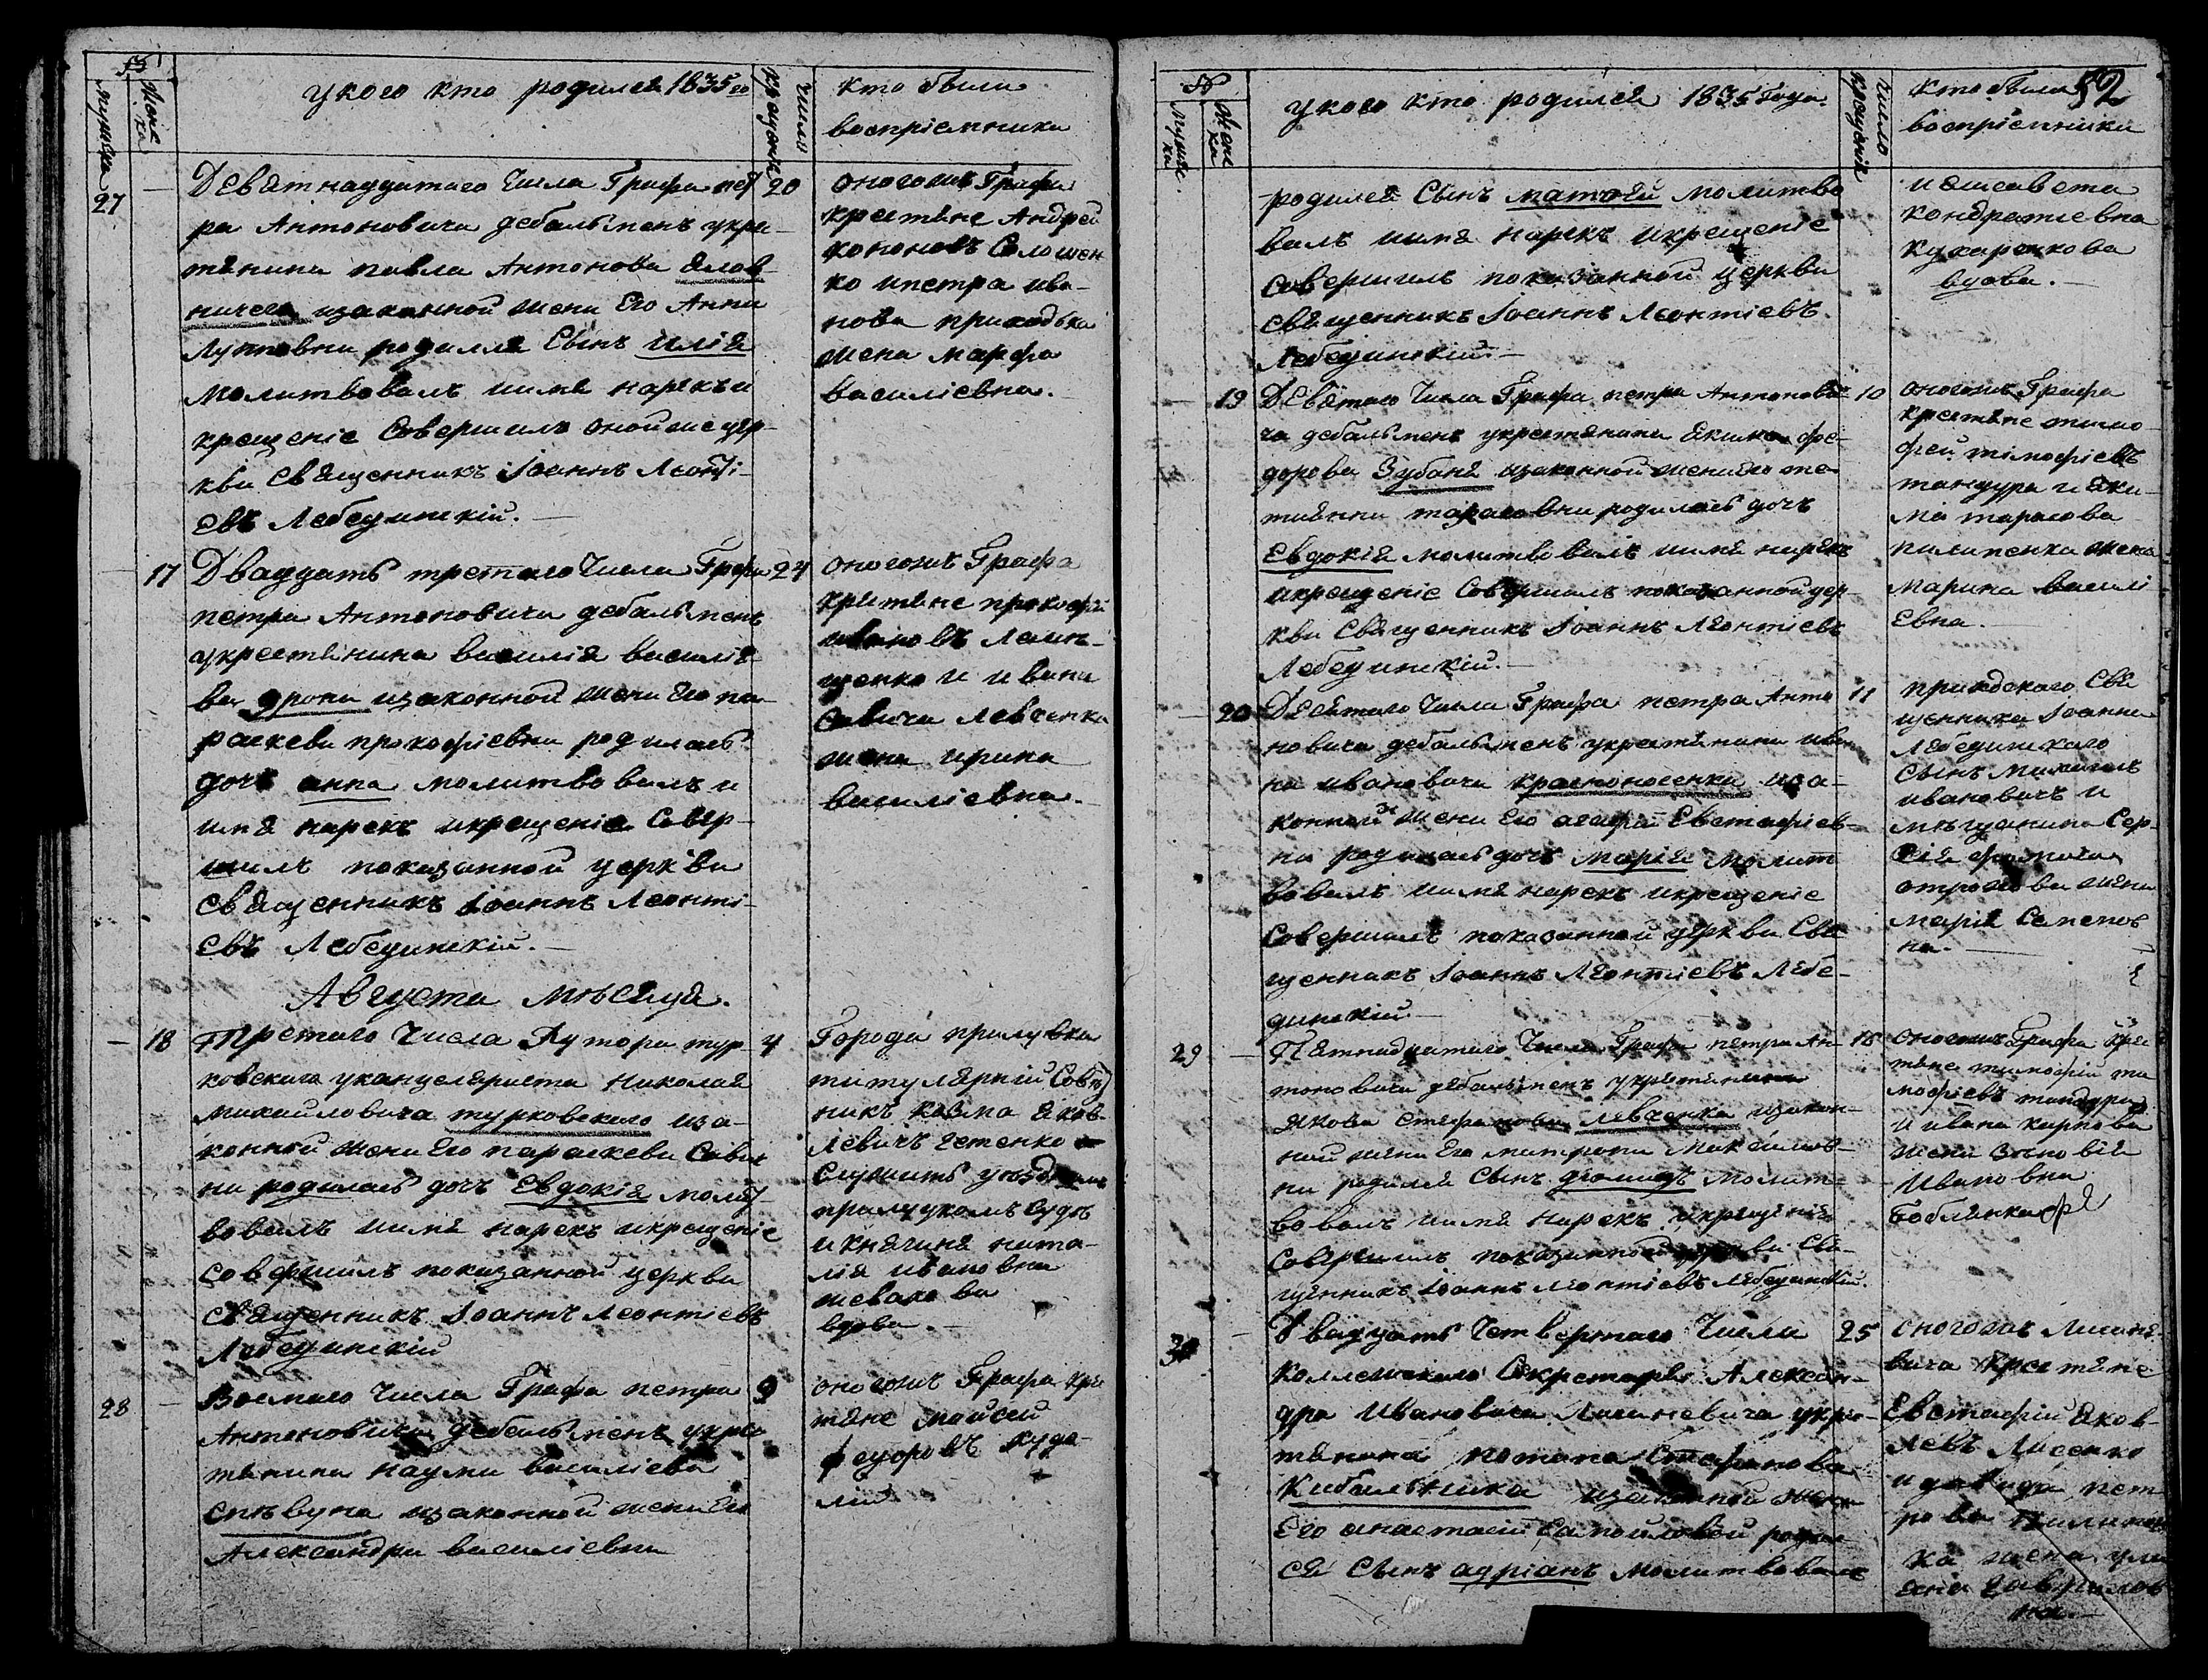 51
мужеска
женска
укого кто родился 1835го
число крещенія
кто были
воспріемники
27
Девятнаддатаго числа Графа пет-
20
ра Антоновича дебальменъ укре-
тянина павла Антонова Ялов-
ничего изаконной жени Его Анни
Луповни родился Сынъ илія
молитвовалъ иимя нарекъ и
крещеніе Совершилъ оной же цер-
кви Священникъ Іоаннъ Леонті-
евъ Лебединскій.
оногожъ Графа
крестяне Андрей
кононовъ Соломен
ко ипетра ива-
нова приходька
жена марфа
василіевна.
17
Двадцать третаго числа Графа
24
петра Антоновича дебальменъ
укрестянина василія василіе-
ва дрони изаконной жени Его па-
раскеви прокофіевни родилась
дочъ анна молитвовалъ и
имя нарекъ икрещеніе Совер-
шилъ показанной церкви
Священникъ Іоаннъ Леонті-
евъ Лебединскій.
оногожъ Графа
крестяне прокофій
ивановъ
щенко и ивана
Савича Левченка
жена ирина
василіевна.
Августа мѣсяца.
18
Третаго числа Хутора тур-
4
ковскаго уканцеляриста николая
михайловича турковскаго иза-
конной жени Его параскеви Сави
ни родилась дочъ Евдокія молит-
вовалъ иимя нарекъ икрещеніе
Совершилъ показанной церкви
Священникъ Іоаннъ Леонтіевъ
Лебединскій
Города прилукъ
титулярній Совѣт
никъ козма Яков-
левичъ
служитъ уѣздномъ
прилуцкомъ Судѣ
и княгиня ната-
лія ивановна
вдова.
28
Восмаго числа Графа петра
9
Антоновича дебальменъ укрес
тянина наума василіева
Спѣвуна изаконной жени Его
Александри василіевни
оногожъ Графа кре
тяне мойсей
федоровъ худо-
лій
52
56
мужеска
женска
укого кто родился 1835 Года
число крещенія
кто были
воспріемники
родился Сынъ матөей молитво
валъ иимя нарекъ икрещеніе
Совершилъ показанной церкви
Священникъ Іоаннъ Леонтіевъ
Лебединскій.
иелисавета
кондратіевна
кухаренкова
вдова.
19
Девятаго числа Графа петра Антонови
10
ча дебальменъ укрестянина Якима фе-
дорова Зубаня изаконной жени Его та
тіянни тарасовни родилась дочъ
Евдокія молитвовалъ иимя нарекъ
икрещеніе Совершилъ показанной цер-
кви Священникъ Іоаннъ Леонтіевъ
Лебединскій.
оногожъ Графа
крестяне тимо-
фей тімофіевъ
тандура и Яки-
ма тарасова
пилипенка жена
марина василі
Евна.
20
Десятаго числа Графа петра Анто
11
новича дебальменъ укрестянина ива
на ивановича красноносенка иза-
конной жени Его агафіи Евстафіев-
ни родилась дочъ марія молит
вовалъ иимя нарекъ икрещеніе
Совершилъ показанной церкви Свя
щенникъ Іоаннъ Леонтіевъ Лебе-
динскій
приходскаго Свя
щенника Іоанна
Лебединскаго
Сынъ михаилъ
ивановичъ и
мѣщанина Сер-
гія
жена
марія Семенов
на
29
Пятнадцатаго числа Графа петра Ан-
18
тоновича дебальменъ укрестянина
якова Стефанова Левченка изакон-
ной жени Его матрони максимов-
ни родился Сынъ диомидъ молит-
вовалъ иимя нарекъ икрещеніе
Совершилъ показанной церкви Свя-
щенникъ Іоаннъ Леонтіевъ Лебединскій.
оногожъ Графа крес
тяне тимофій ти
мофіевъ тандура
и ивана карпова
жена Зѣновія
ивановна
30
Двадцать четвертаго числа
25
Коллежскаго Секретаря Алексан-
дра Ивановича Лисаневича укрес-
тянина потапа Стефанова
Кибальника изаконной жени
Его анастасіи Самойловой родил
ся Сынъ адріанъ молитвовалъ
оногожъ Лисане-
вича крестяне
Евстафій Яков-
левъ Лисенко
и давида пет
рова
ка жена ули
анія гаврилов
на.